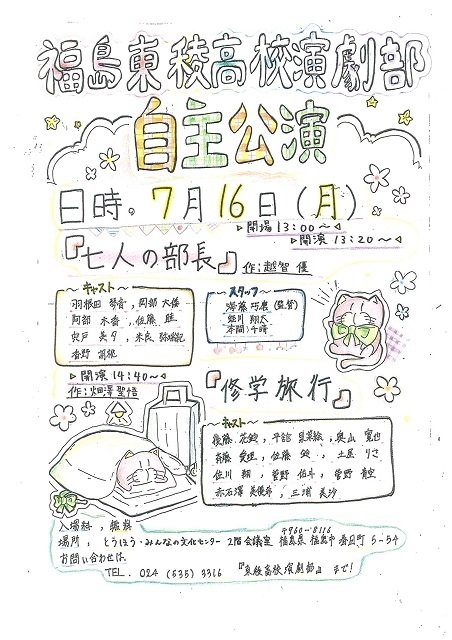 福島東稜高校演劇部
自主公演
日時。7月16日(月)
▷開場 13:00〜◁
▷開演 13:20〜◁
『七人の部長』 作:越智 優
〜キャスト〜
羽根田 琴音, 阿部 大儀
阿部 木香, 佐藤 睦
宍戸 美夕, 末良
香野
〜スタッフ〜
海藤 巧磨(監督)
蛭川 翔太
本間 千晴
▷開演 14:40〜◁
作:畑澤 聖悟
『修学旅行』
〜キャスト〜
後藤 花鈴, 平舘, 奥山 寛也
斎藤 愛理, 佐藤, 土屋 りさ
佐川 翔, 菅野 佑斗, 菅野 青空
赤石澤 美優希, 三浦 美沙
入場料, 無料
場所, とうほう・みんなの文化センター 2階会議室 〒960-8116 福島県 福島市 春日町 5-54
お問い合わせは
TEL. 024 (535) 3316 『東稜高校演劇部』まで!